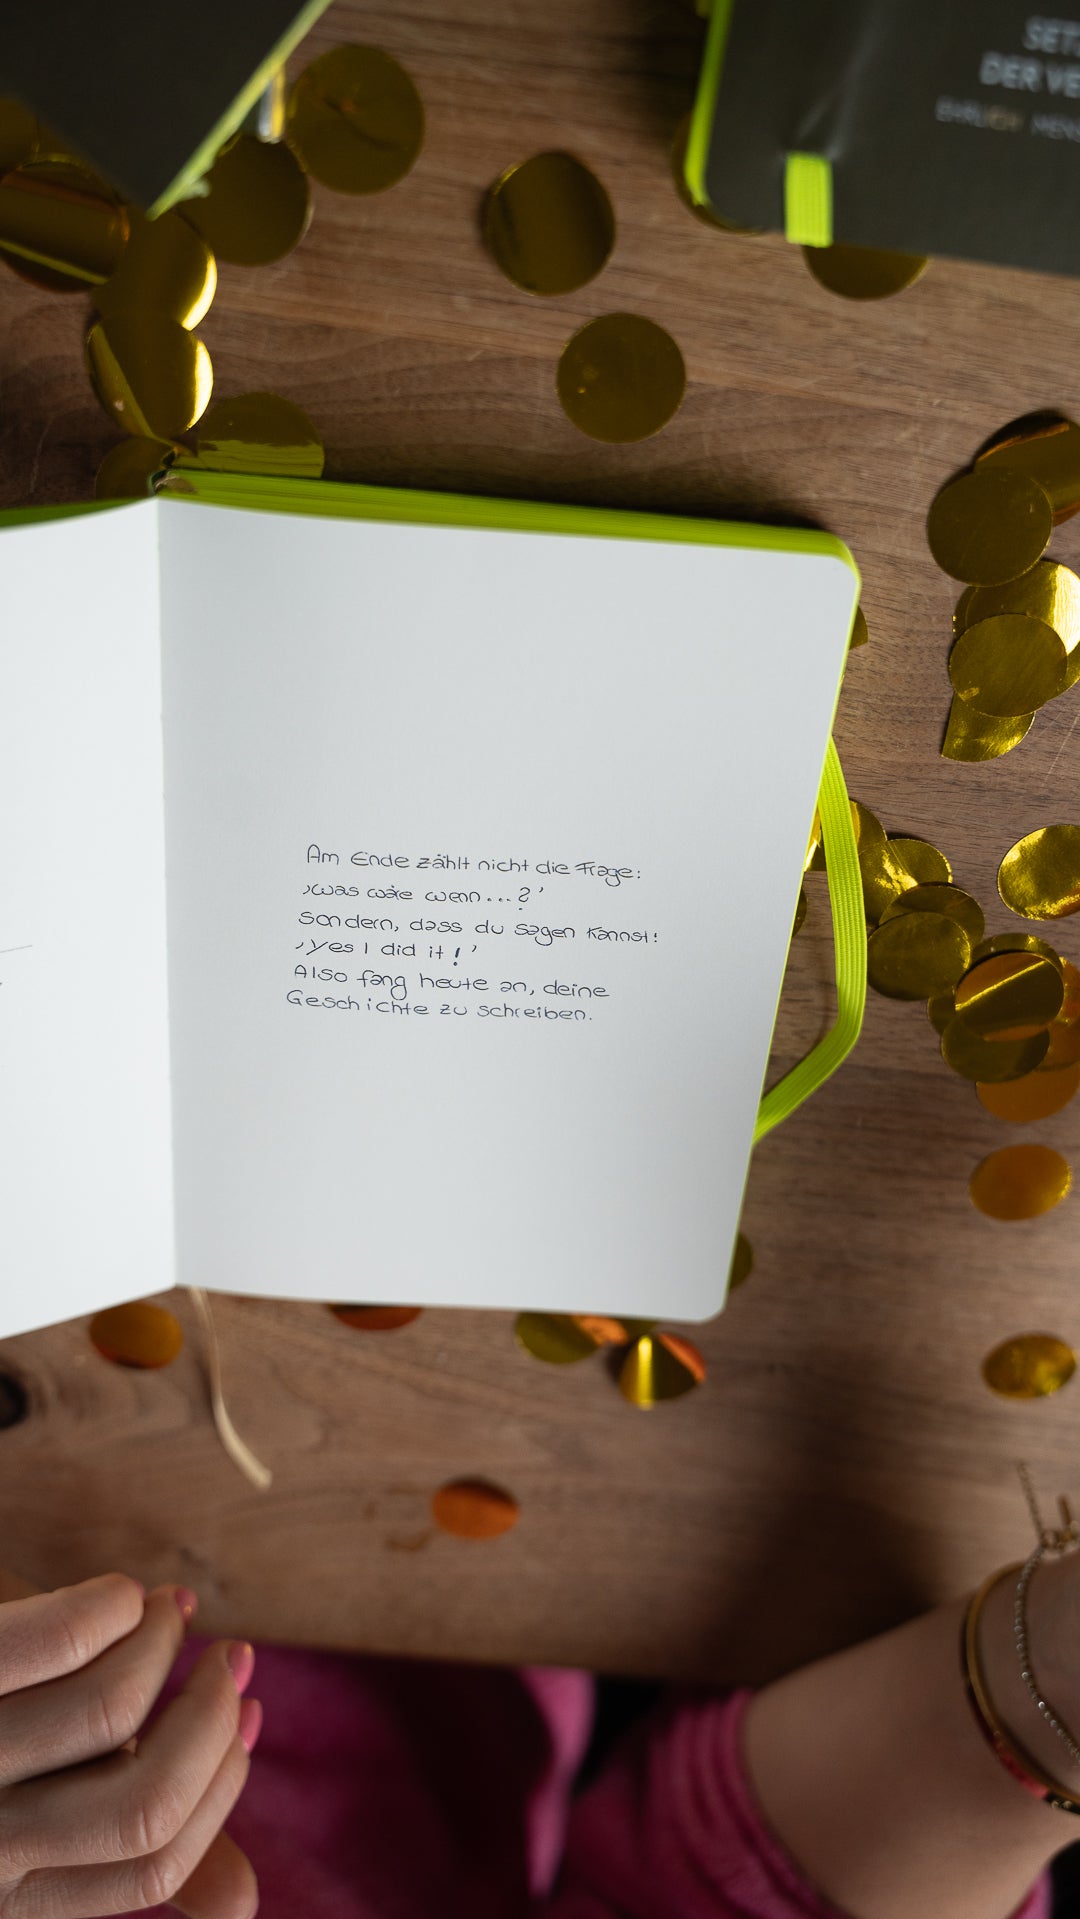 SET
DER VE
EHRLICH MENS
Am Ende zählt nicht die Frage:
‚was wäre wenn...?'
sondern, dass du sagen kannst:
‚Yes I did it!'
Also fang heute an, deine
Geschichte zu schreiben.